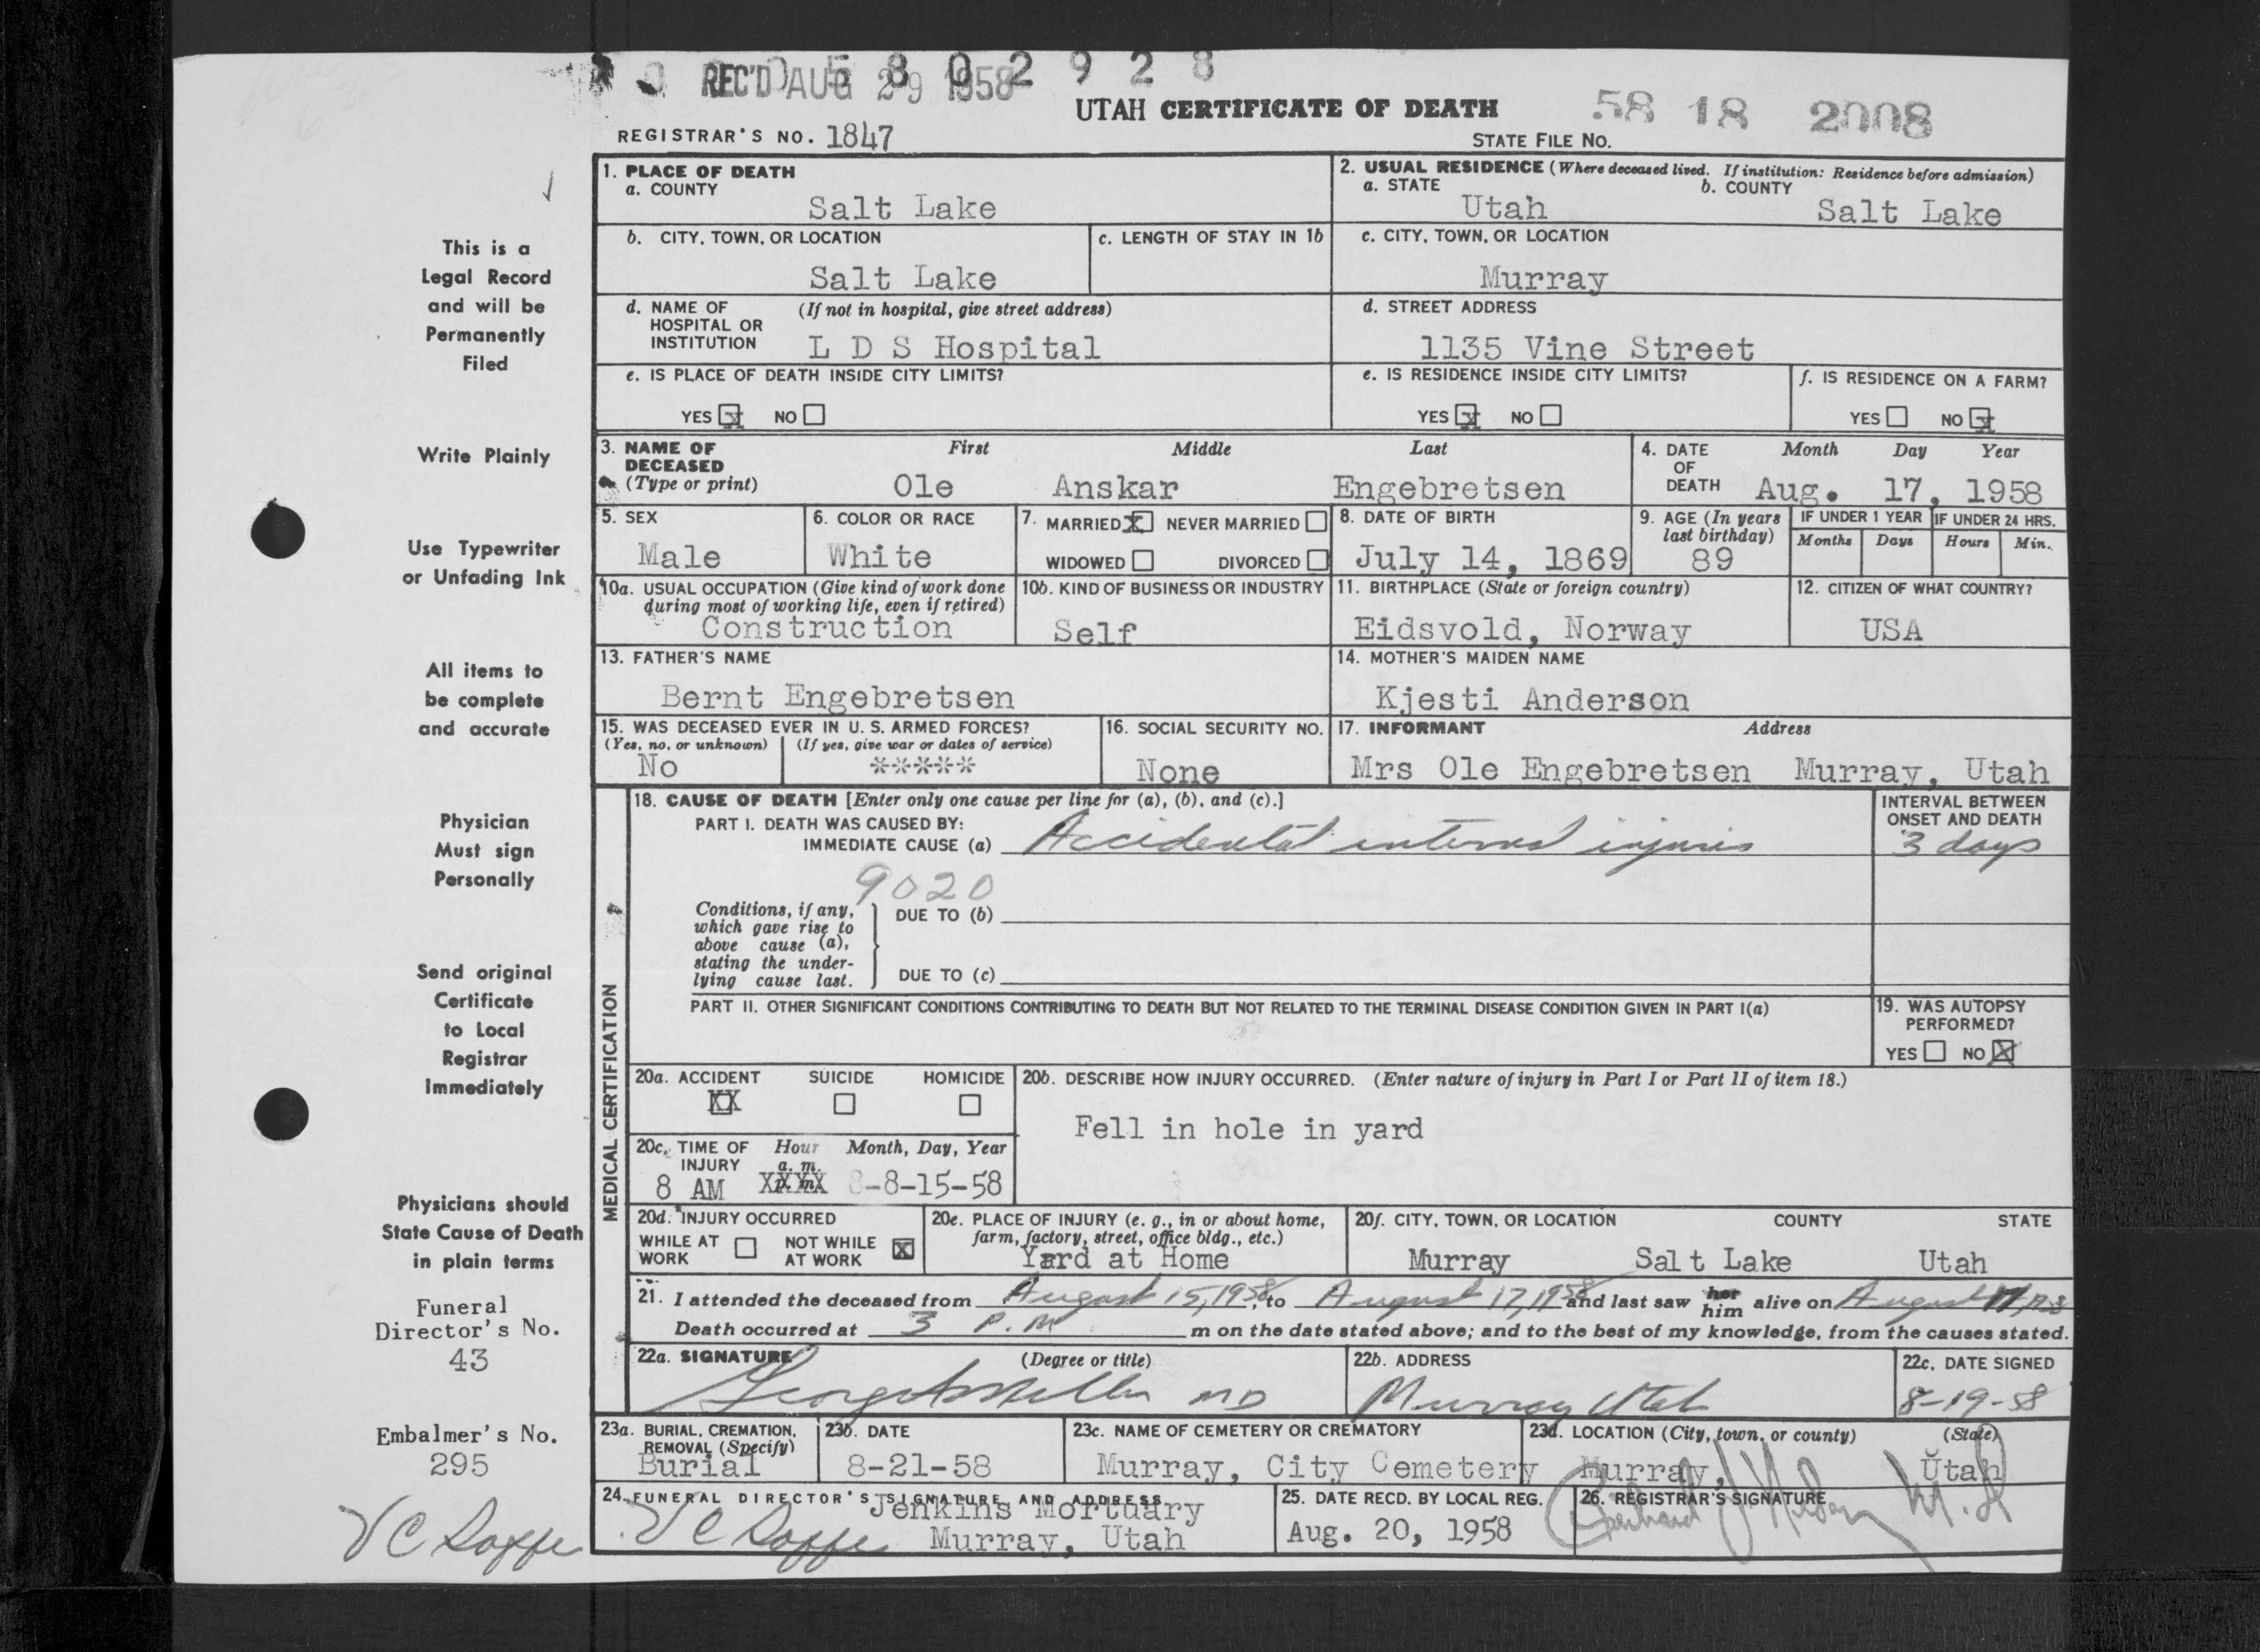 REC'D AUG 29 1958
5802928
UTAH CERTIFICATE OF DEATH
58 18 2008
REGISTRAR'S NO. 1847
STATE FILE NO.
This is a
Legal Record
and will be
Permanently
Filed
Write Plainly
Use Typewriter
or Unfading Ink
All items to
be complete
and accurate
Physician
Must sign
Personally
Send original
Certificate
to Local
Registrar
Immediately
Physicians should
State Cause of Death
in plain terms
Funeral
Director's No.
43
Embalmer's No.
295
1. PLACE OF DEATH
a. COUNTY
Salt Lake
2. USUAL RESIDENCE (Where deceased lived. If institution: Residence before admission)
a. STATE b. COUNTY
Utah Salt Lake
b. CITY, TOWN, OR LOCATION
Salt Lake
c. LENGTH OF STAY IN 1b
c. CITY, TOWN, OR LOCATION
Murray
d. NAME OF (If not in hospital, give street address)
HOSPITAL OR
INSTITUTION L D S Hospital
d. STREET ADDRESS
1135 Vine Street
e. IS PLACE OF DEATH INSIDE CITY LIMITS?
YES X NO
e. IS RESIDENCE INSIDE CITY LIMITS?
YES X NO
f. IS RESIDENCE ON A FARM?
YES NO X
3. NAME OF First Middle Last
DECEASED
(Type or print) Ole Anskar Engebretsen
4. DATE Month Day Year
OF
DEATH Aug. 17, 1958
5. SEX
Male
6. COLOR OR RACE
White
7. MARRIED X NEVER MARRIED
WIDOWED DIVORCED
8. DATE OF BIRTH
July 14, 1869
9. AGE (In years
last birthday)
89
IF UNDER 1 YEAR
Months Days
IF UNDER 24 HRS.
Hours Min.
10a. USUAL OCCUPATION (Give kind of work done
during most of working life, even if retired)
Construction
10b. KIND OF BUSINESS OR INDUSTRY
Self
11. BIRTHPLACE (State or foreign country)
Eidsvold, Norway
12. CITIZEN OF WHAT COUNTRY?
USA
13. FATHER'S NAME
Bernt Engebretsen
14. MOTHER'S MAIDEN NAME
Kjesti Anderson
15. WAS DECEASED EVER IN U. S. ARMED FORCES?
(Yes, no, or unknown) (If yes, give war or dates of service)
No *****
16. SOCIAL SECURITY NO.
None
17. INFORMANT Address
Mrs Ole Engebretsen Murray, Utah
MEDICAL CERTIFICATION
18. CAUSE OF DEATH [Enter only one cause per line for (a), (b), and (c).]
PART I. DEATH WAS CAUSED BY:
IMMEDIATE CAUSE (a) Accidental internal injuries
INTERVAL BETWEEN
ONSET AND DEATH
3 days
9020
Conditions, if any,
which gave rise to
above cause (a),
stating the under-
lying cause last.
DUE TO (b)
DUE TO (c)
PART II. OTHER SIGNIFICANT CONDITIONS CONTRIBUTING TO DEATH BUT NOT RELATED TO THE TERMINAL DISEASE CONDITION GIVEN IN PART I(a)
19. WAS AUTOPSY
PERFORMED?
YES NO X
20a. ACCIDENT SUICIDE HOMICIDE
XX
20b. DESCRIBE HOW INJURY OCCURRED. (Enter nature of injury in Part I or Part II of item 18.)
Fell in hole in yard
20c. TIME OF Hour Month, Day, Year
INJURY a. m.
8 AM XXXX 8-8-15-58
20d. INJURY OCCURRED
WHILE AT NOT WHILE
WORK AT WORK X
20e. PLACE OF INJURY (e. g., in or about home,
farm, factory, street, office bldg., etc.)
Yard at Home
20f. CITY, TOWN, OR LOCATION COUNTY STATE
Murray Salt Lake Utah
21. I attended the deceased from August 15, 1958, to August 17, 1958 and last saw her him alive on August 17,
Death occurred at 3 P.M m on the date stated above; and to the best of my knowledge, from the causes stated.
22a. SIGNATURE (Degree or title)
MD
22b. ADDRESS
Murray Utah
22c. DATE SIGNED
8-19-58
23a. BURIAL, CREMATION,
REMOVAL (Specify)
Burial
23b. DATE
8-21-58
23c. NAME OF CEMETERY OR CREMATORY
Murray, City Cemetery
23d. LOCATION (City, town, or county) (State)
Murray, Utah
24. FUNERAL DIRECTOR'S SIGNATURE AND ADDRESS
Jenkins Mortuary
Murray, Utah
25. DATE RECD. BY LOCAL REG.
Aug. 20, 1958
26. REGISTRAR'S SIGNATURE